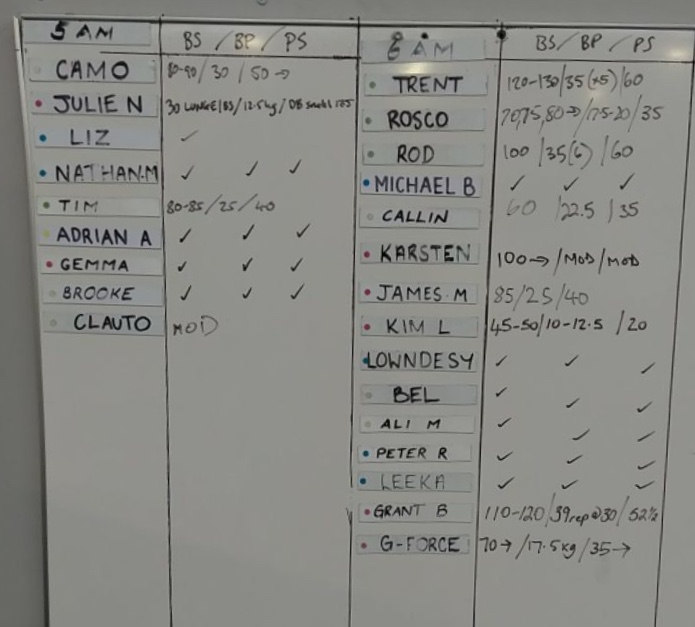 5 AM BS / BP / PS
CAMO 80-90 / 30 / 50 →
JULIE N 30 LUNGE / BS / 12.5kg /
LIZ ✓
NATHAN.M ✓ ✓ ✓
TIM 80-85 / 25 / 40
ADRIAN A ✓ ✓ ✓
GEMMA ✓ ✓ ✓
BROOKE ✓ ✓ ✓
CLAUTO MOD
6 AM BS / BP / PS
TRENT 120-130 / 35 (+5) / 60
ROSCO 70,75,80 → / 17.5-20 / 35
ROD 100 / 35(6) / 60
MICHAEL B ✓ ✓ ✓
CALLIN 60 / 22.5 / 35
KARSTEN 100 → / MOD / MOD
JAMES M 85 / 25 / 40
KIM L 45-50 / 10-12.5 / 20
LOWNDESY ✓ ✓ ✓
BEL ✓ ✓ ✓
ALI M ✓ ✓ ✓
PETER R ✓ ✓ ✓
LEEKA ✓ ✓ ✓
GRANT B 110-120 / 39 rep @ 30 / 52½
G-FORCE 70 → / 17.5 kg / 35 →